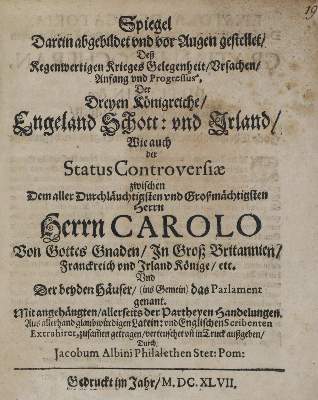 19
Spiegel
Darein abgebildet und vor Augen gestellet/
Deß
Kegenwertigen Krieges Gelegenheit/ Vrsachen/
Anfang vnd Progressus,
Der
Dreyen Königreiche/
Engeland Schott: und Irland/
Wie auch
der
Status Controversiæ
zwischen
Dem aller Durchläuchtigsten und Großmächtigsten
Herrn
Herrn CAROLO
Von Gottes Gnaden/ In Groß Britannien/
Franckreich vnd Irland Könige/ etc.
Und
Der beyden Häuser/ (ins Gemein) das Parlament
genant.
Mit angehängten/ allerseits der Partheyen Handelungen.
Aus allerhand glaubwürdigen Latein: und Englischen Scribenten
Extrahiret, zusamen getragen/ verteuschet uñ in Truck außgeben/
Durch
Jacobum Albini Philalethen Stet: Pom:
Gedruckt im Jahr/ M. DC. XLVII.